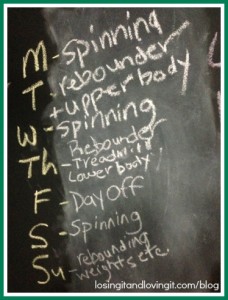 M - spinning
T - rebounder
+ upper body
W - spinning
Th - Rebounder
Treadmill
Lower body
F - Day off
S - Spinning
Su - rebounding
weights etc.
losingitandlovingit.com/blog